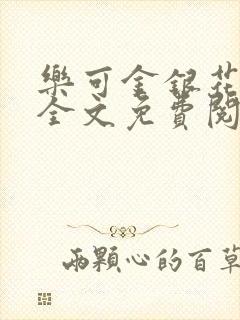 樂可金銀花
全文免費閱
兩顆心的百草